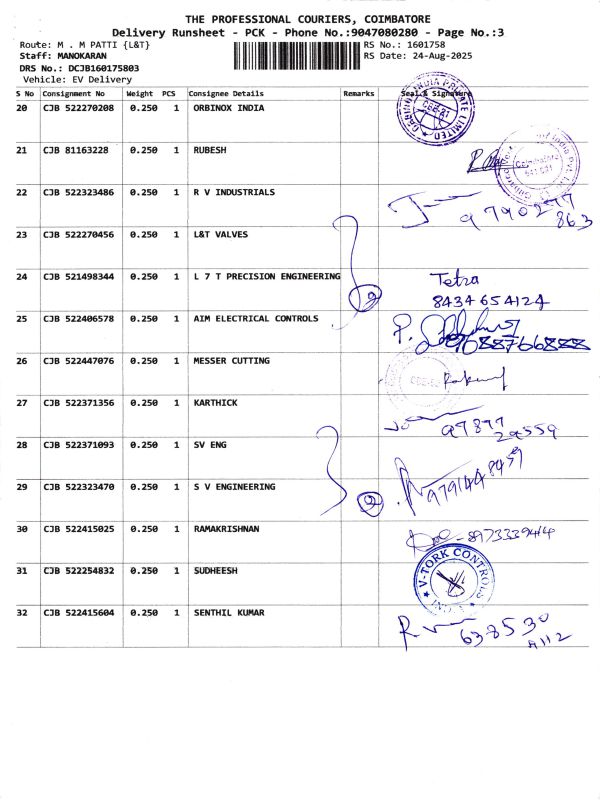 THE PROFESSIONAL COURIERS, COIMBATORE
Delivery Runsheet - PCK - Phone No.:9047080280 - Page No.:3
Route: M . M PATTI {L&T} RS No.: 1601758
Staff: MANOKARAN RS Date: 24-Aug-2025
DRS No.: DCJB160175803
Vehicle: EV Delivery
S No Consignment No Weight PCS Consignee Details Remarks Seal & Signature
20 CJB 522270208 0.250 1 ORBINOX INDIA
21 CJB 81163228 0.250 1 RUBESH
Coimbatore
641 031
22 CJB 522323486 0.250 1 R V INDUSTRIALS
9790277
863
23 CJB 522270456 0.250 1 L&T VALVES
24 CJB 521498344 0.250 1 L 7 T PRECISION ENGINEERING 2 Tetra
8434654124
25 CJB 522406578 0.250 1 AIM ELECTRICAL CONTROLS
26 CJB 522447076 0.250 1 MESSER CUTTING
27 CJB 522371356 0.250 1 KARTHICK
97877
29559
28 CJB 522371093 0.250 1 SV ENG
29 CJB 522323470 0.250 1 S V ENGINEERING 2 9791448459
30 CJB 522415025 0.250 1 RAMAKRISHNAN
31 CJB 522254832 0.250 1 SUDHEESH
V-TORK CONTROLS
INDIA
32 CJB 522415604 0.250 1 SENTHIL KUMAR
638530
A112